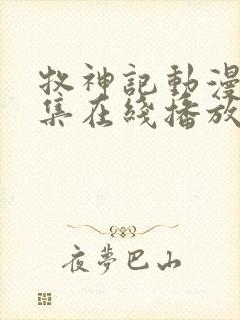 牧神記動漫
集在綫播放
夜夢巴山